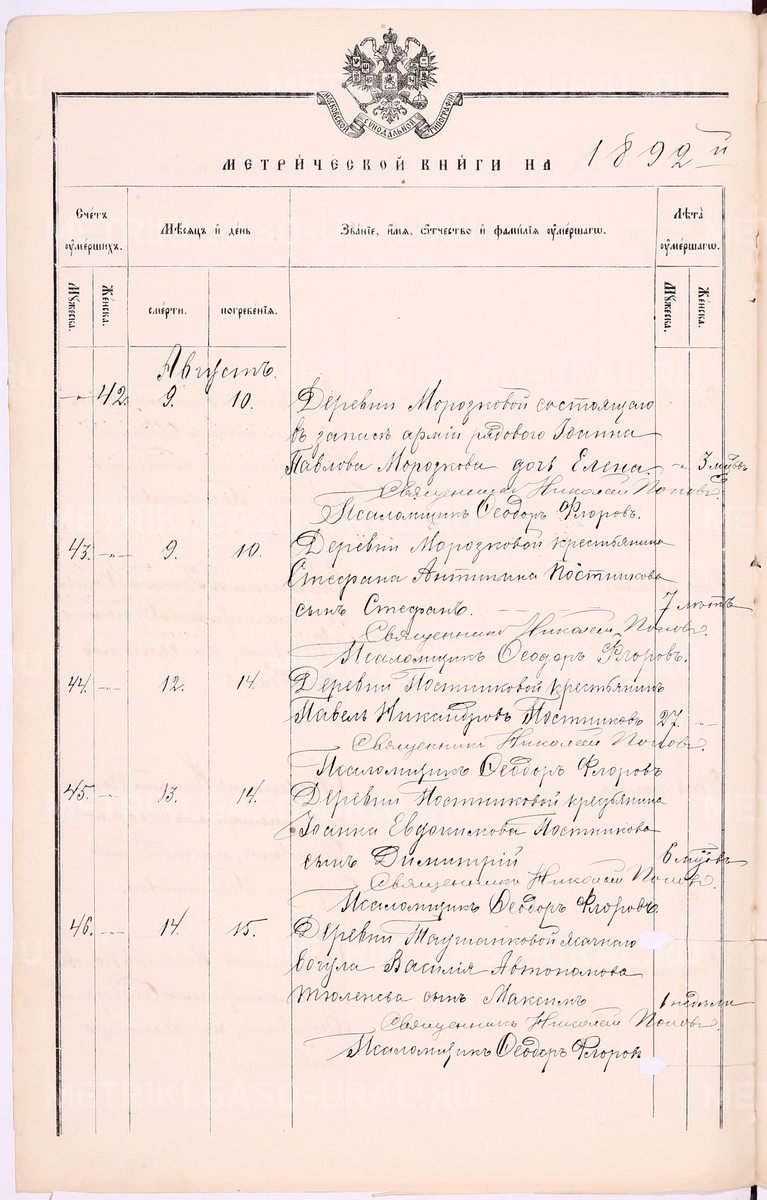 МОСКОВСКОЙ СѴНОДАЛЬНОЙ ТИПОГРАФІИ
МЕТРИ́ЧЕСКОЙ КНИ́ГИ НА 1892 й
Сче́тъ ᲂу҆ме́ршихъ.
Мѣ́сяцъ и҆ де́нь
Зва́нїе, и҆́мя, ѻ҆́тчество и҆ фамилїѧ ᲂу҆ме́ршагѡ.
Лѣта̀ ᲂу҆ме́ршагѡ.
Мꙋ́жеска.
Же́нска.
сме́рти.
погребе́нїѧ.
Мꙋ́жеска.
Же́нска.
Августъ.
-"- 42. 9. 10. Деревни Морозковой состоящаго
въ запасѣ арміи рядового Іоанна
Павлова Морозкова дочь Елена. -"- 3 мѣсъ
Священникъ Николай Поповъ.
Псаломщикъ Ѳеодоръ Флоровъ.
43. -"- 9. 10. Деревни Морозковой крестьянина
Стефана Антипина Постникова
сынъ Стефанъ. 7 лѣтъ
Священникъ Николай Поповъ.
Псаломщикъ Ѳеодоръ Флоровъ.
44. -"- 12. 14. Деревни Постниковой крестьянинъ
Павелъ Никандровъ Постниковъ 27. -"-
Священникъ Николай Поповъ.
Псаломщикъ Ѳеодоръ Флоровъ
45. -"- 13. 14. Деревни Постниковой крестьянина
Іоанна Евдокимова Постникова
сынъ Димитрій 6 мѣсовъ
Священникъ Николай Поповъ.
Псаломщикъ Ѳеодоръ Флоровъ.
46. -"- 14. 15. Деревни Таушанковой ясачнаго
вогула Василія Автономова
Тюленева сынъ Максимъ 1 недѣли
Священникъ Николай Поповъ.
Псаломщикъ Ѳеодоръ Флоровъ
METRIKI.GASO-URAL.RU